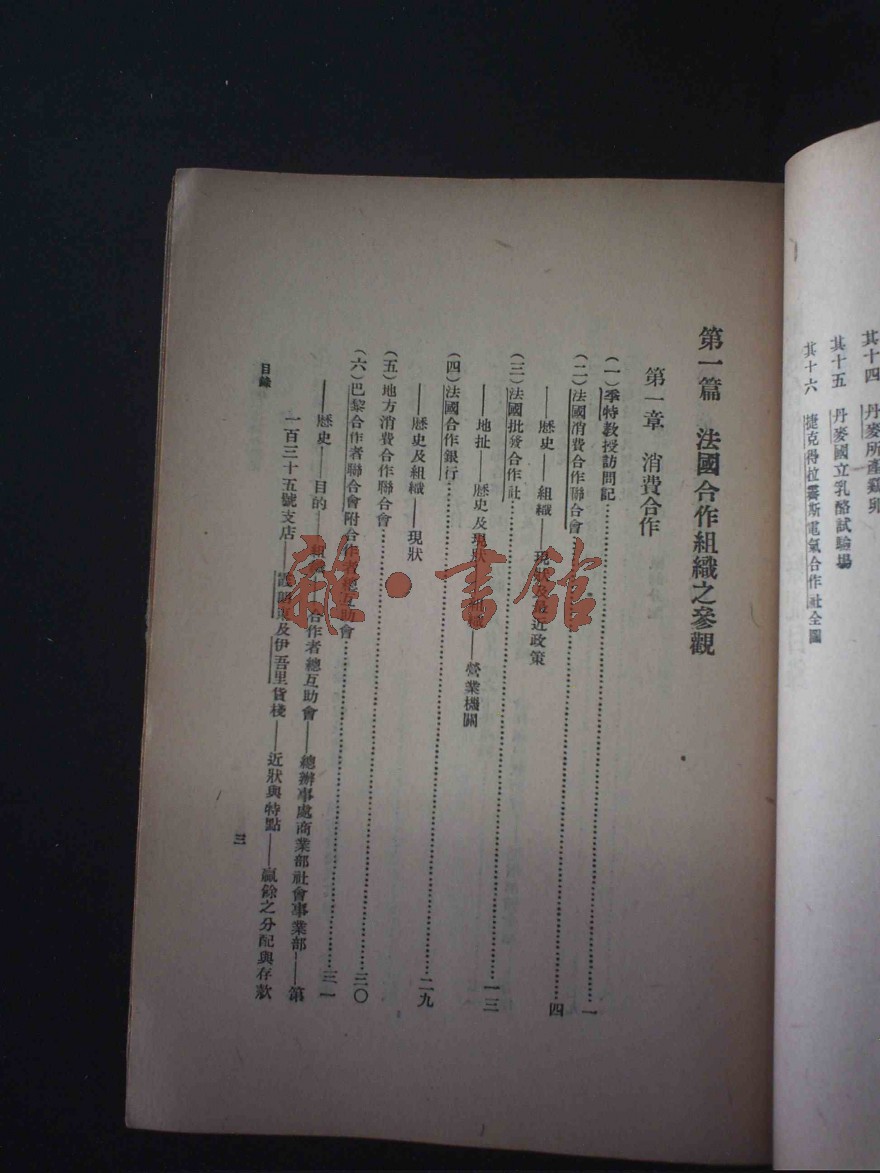 其十四　丹麥所產雞卵
其十五　丹麥國立乳酪試驗場
其十六　捷克得拉霽斯電氣合作社全圖
第一篇　法國合作組織之參觀
第一章　消費合作
（一）季特教授訪問記……一
（二）法國消費合作聯合會……四
——歷史——組織——現狀及最近政策
（三）法國批發合作社……一三
——地址——歷史及現狀——組織——營業機關
（四）法國合作銀行……二九
——歷史及組織——現狀
（五）地方消費合作聯合會……三〇
（六）巴黎合作者聯合會附合作者總互助會……三一
——歷史——目的——組織——合作者總互助會——總辦事處商業部社會事業部——第
一百三十五號支店——及伊吾里貨棧——近狀與特點——贏餘之分配與存款
目錄
三
雜·書館